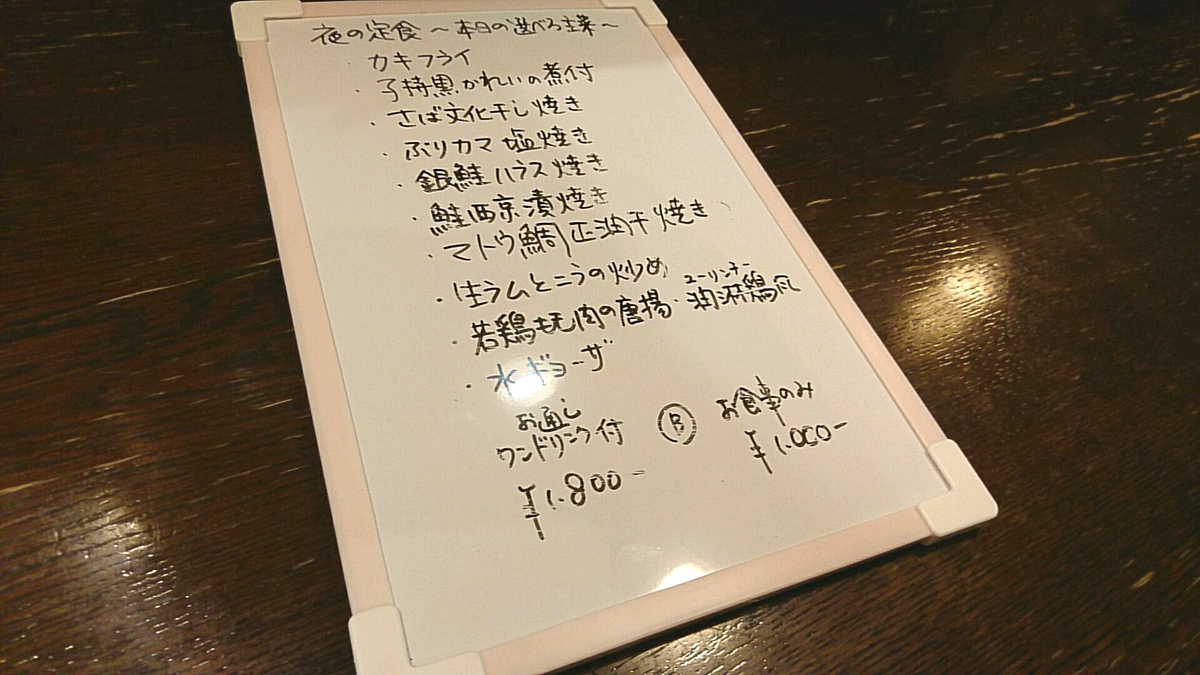 夜の定食～本日の選べる主菜～
・カキフライ
・子持黒かれいの煮付
・さば文化干し焼き
・ぶりカマ塩焼き
・銀鮭ハラス焼き
・鮭西京漬焼き
・マトウ鯛正油干焼き
・生ラムとニラの炒め
ユーリンチー
・若鶏もも肉の唐揚・油淋鶏
・水ギョーザ
お通し
ワンドリンク付
¥1.800-
B
お食事のみ
¥1.000-